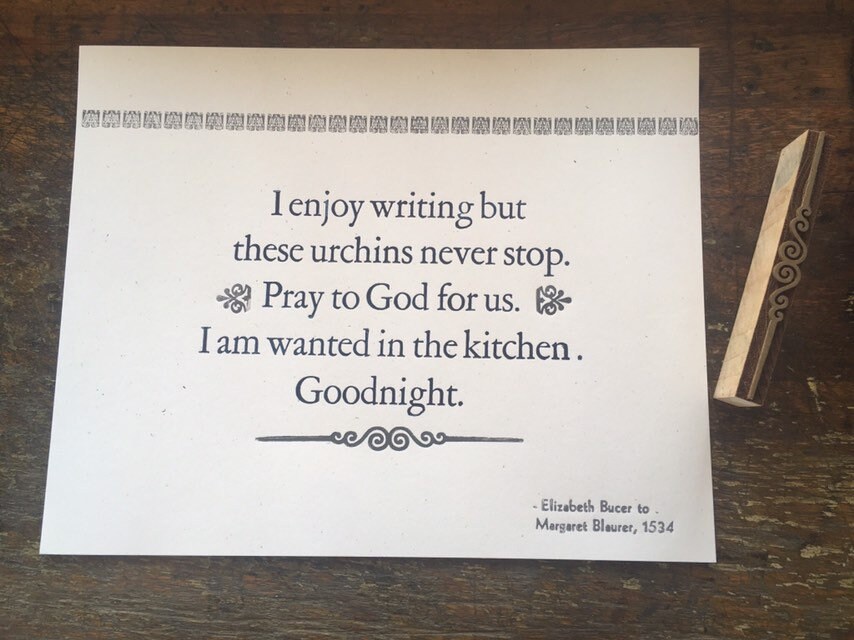 I enjoy writing but
these urchins never stop.
Pray to God for us.
I am wanted in the kitchen .
Goodnight.
- Elizabeth Bucer to .
Margaret Blaurer, 1534